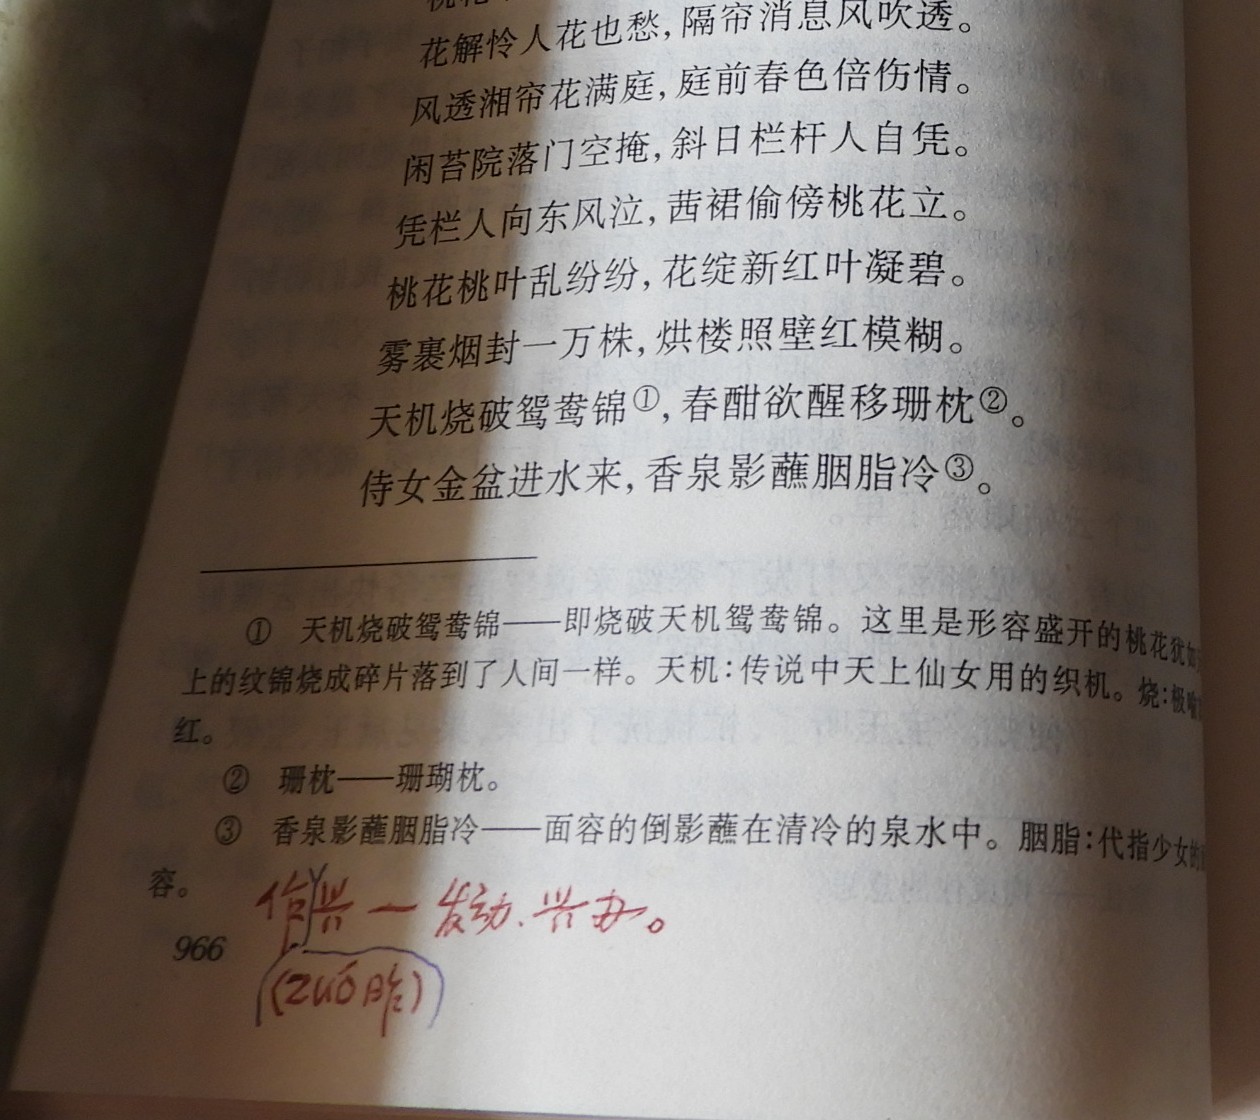 花解怜人花也愁,隔帘消息风吹透。
风透湘帘花满庭,庭前春色倍伤情。
闲苔院落门空掩,斜日栏杆人自凭。
凭栏人向东风泣,茜裙偷傍桃花立。
桃花桃叶乱纷纷,花绽新红叶凝碧。
雾裹烟封一万株,烘楼照壁红模糊。
天机烧破鸳鸯锦①,春酣欲醒移珊枕②。
侍女金盆进水来,香泉影蘸胭脂冷③。
① 天机烧破鸳鸯锦——即烧破天机鸳鸯锦。这里是形容盛开的桃花犹如
上的纹锦烧成碎片落到了人间一样。天机:传说中天上仙女用的织机。烧:极喻
红。
② 珊枕——珊瑚枕。
③ 香泉影蘸胭脂冷——面容的倒影蘸在清冷的泉水中。胭脂:代指少女的
容。
作兴一发动、兴办。
966
(zuó昨)